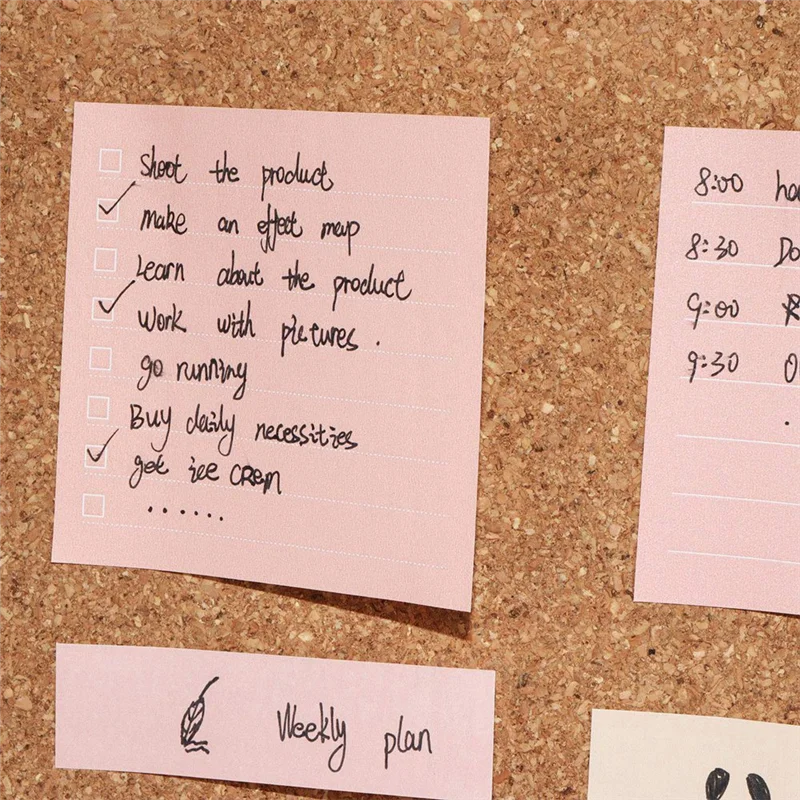 Shoot the product
make an effect map
Learn about the product
Work with pictures .
go running
Buy daily necessities
get ice cream
......
Weekly plan
8:00
8:30 Do
9:00
9:30